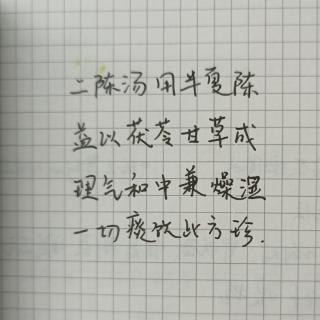 二陈汤用半夏陈
益以茯苓甘草成
理气和中兼燥湿
一切痰饮此方珍.